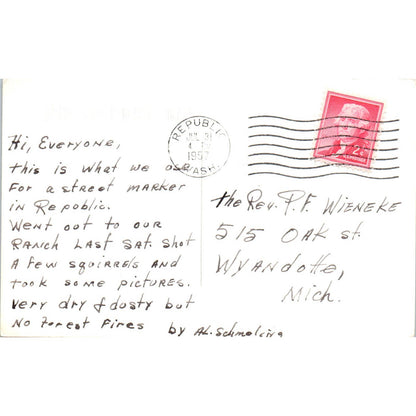 REPUBLIC
1957
WASH.
2¢
Hi, Everyone,
this is what we use
For a street marker
in Republic.
Went out to our
RANCH LAST SAT. Shot
A few squirrels AND
took some pictures.
Very dry & dusty but
No Forest Fires by AL.
the Rev. P.F. WIENEKE
515 OAK St.
WYANDotte,
Mich.